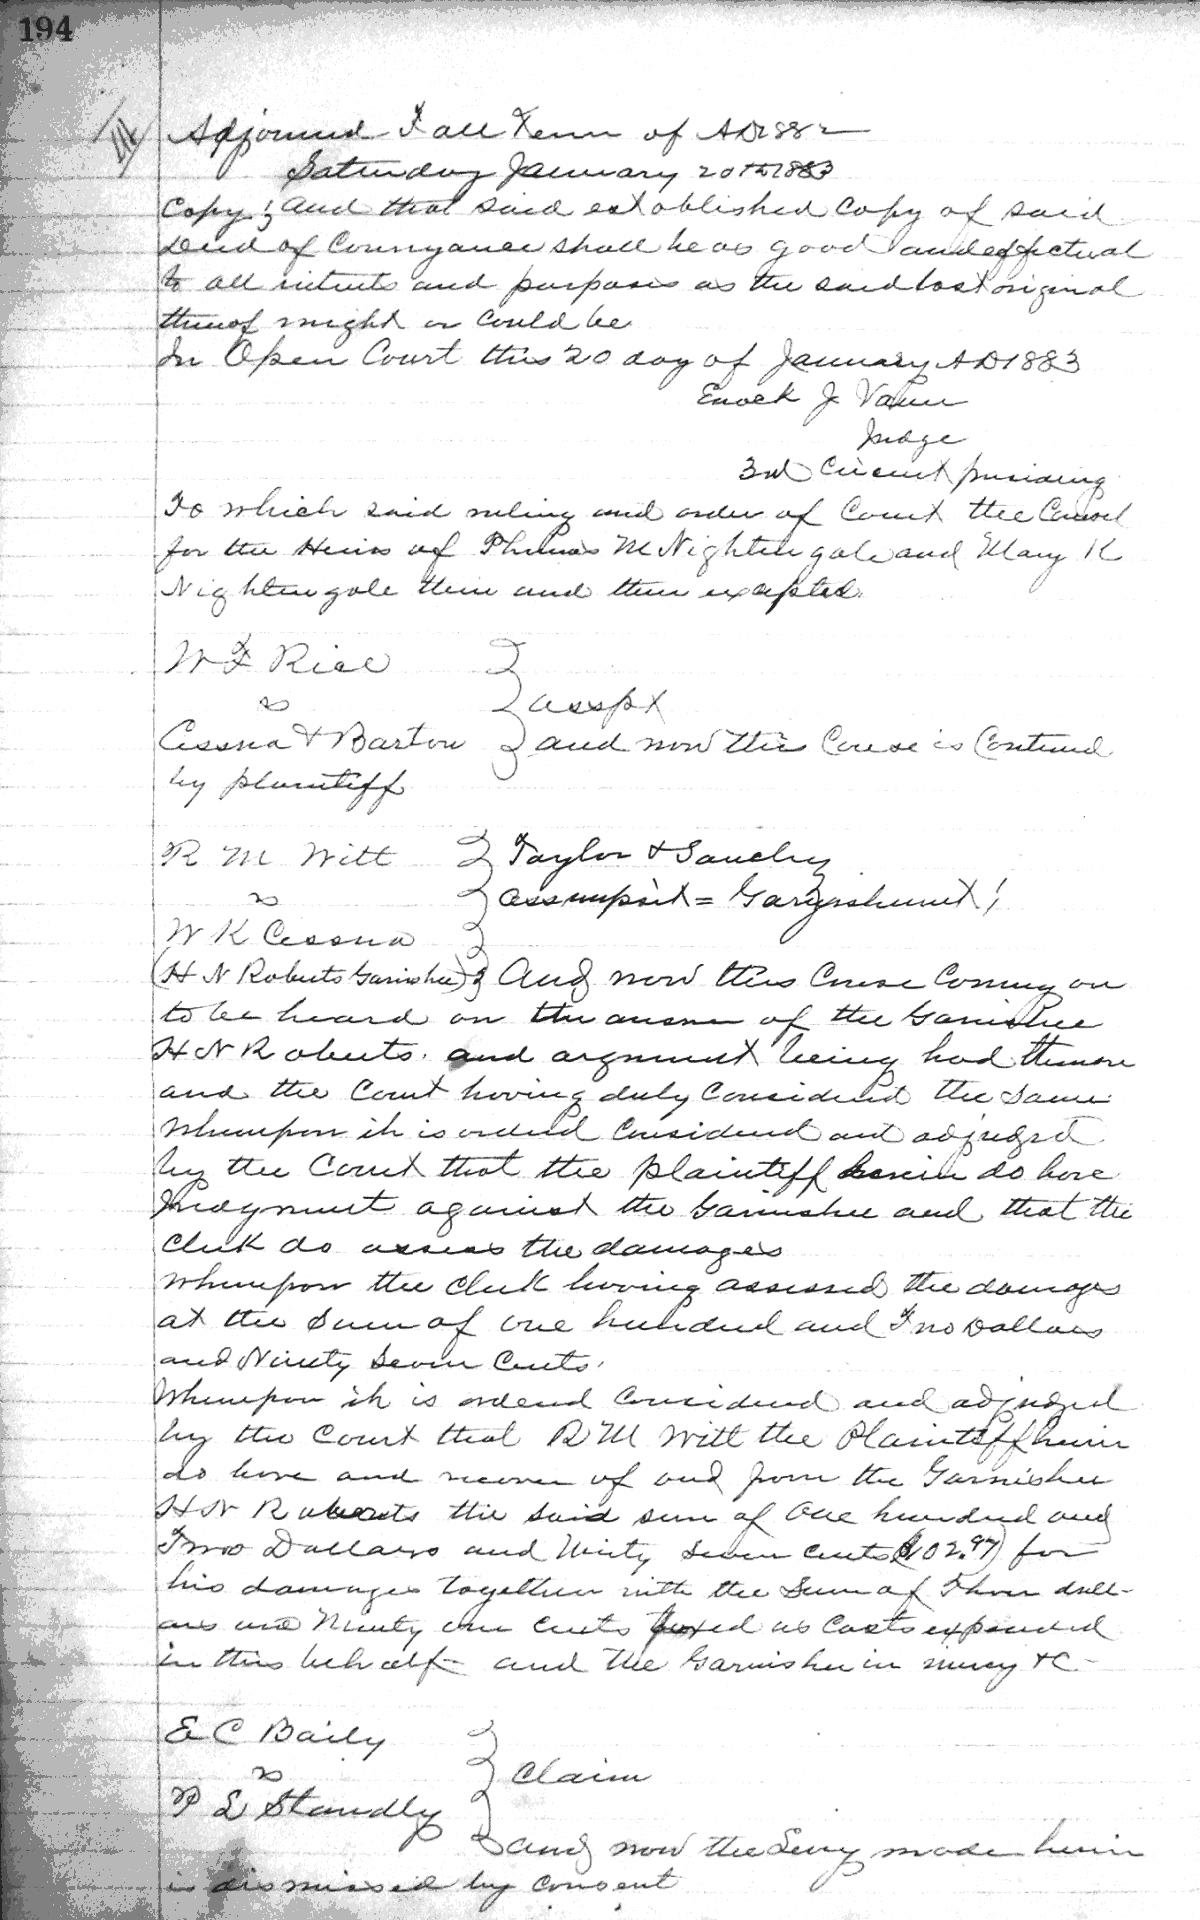 194
Adjourned Fall Term of AD 1882
Saturday January 20th 1883
Copy; and that said established Copy of said
Deed of Conveyance shall be as good and effectual
to all intents and purposes as the said lost original
thereof might or could be
In Open Court this 20 day of January AD 1883
Enock J Vann
Judge
3rd Circuit presiding
To which said ruling and order of Court the Counsel
for the Heirs of Phineas M Nightengale and Mary K
Nightengale then and there excepted.
W F Rice
vs
asspt
Cessna & Barton and now this Cause is Contined
by plaintiff
R M Witt Taylor & Sanchez
vs assumpsit = Garnishment
W K Cessna
(H N Roberts Garnishee) And now this Cause Coming on
to be heard on the answer of the Garnishee
H N Roberts. and argument being had thereon
and the Court having duly Considered the same
Whereupon it is ordered Considered and adjudged
by the Court that the plaintiff herein do have
Judgment against the Garnishee and that the
Clerk do assess the damages
Whereupon the Clerk having assessed the damages
at the Sum of one hundred and Two Dollars
and Ninety Seven Cents.
Whereupon it is ordered Considered and adjudged
by the Court that R M Witt the Plaintiff herein
do have and recover of and from the Garnishee
H N Roberts the said sum of One hundred and
Two Dollars and Ninty Seven Cents ($102.97) for
his damages together with the Sum of Three doll-
ars and Ninety one Cents taxed as Costs expended
in this behalf - and the Garnishee in mercy &C -
E C Baily
vs Claim
P L Standly
and now the Levy made herein
is dismissed by consent